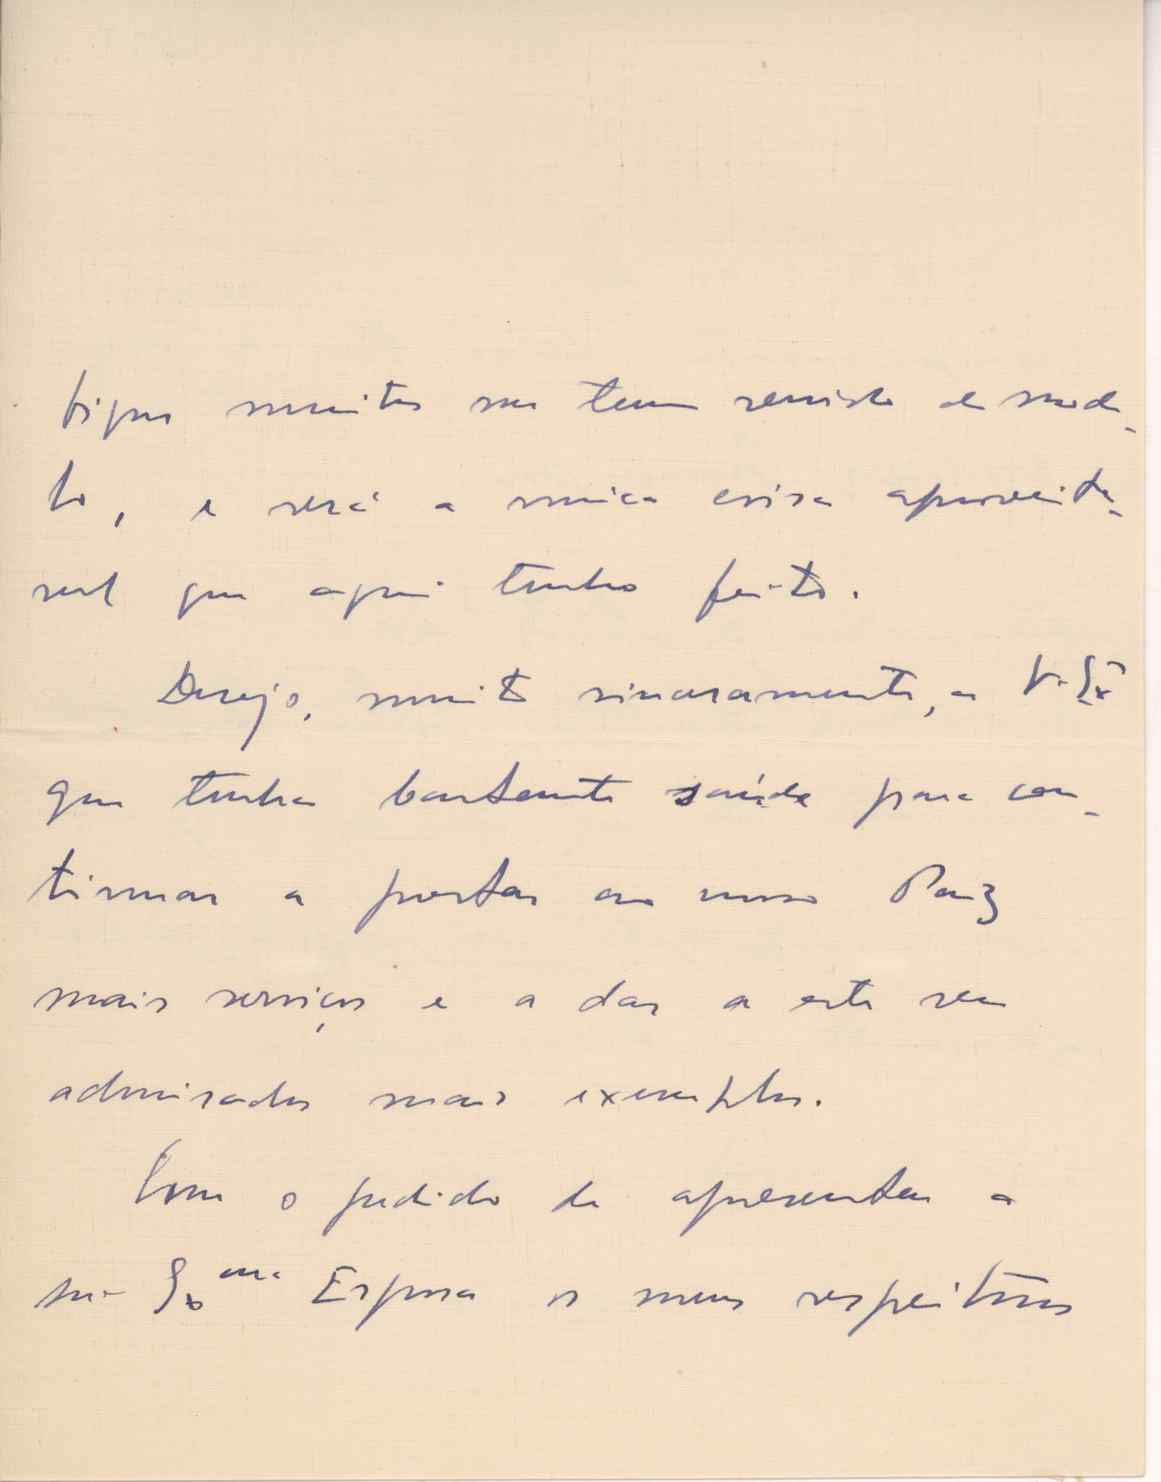 figura muitas me tem servido de mode-
lo, e será a unica coisa aproveita-
vel que aqui tenho feito.
Desejo, muito sinceramente, a V. Exª
que tenha bastante saúde para con-
tinuar a prestar ao nosso Paiz
mais serviços e a dar a este seu
admirador mais exemplos.
Com o pedido de apresentar a
sua Exma Esposa os meus respeitosos